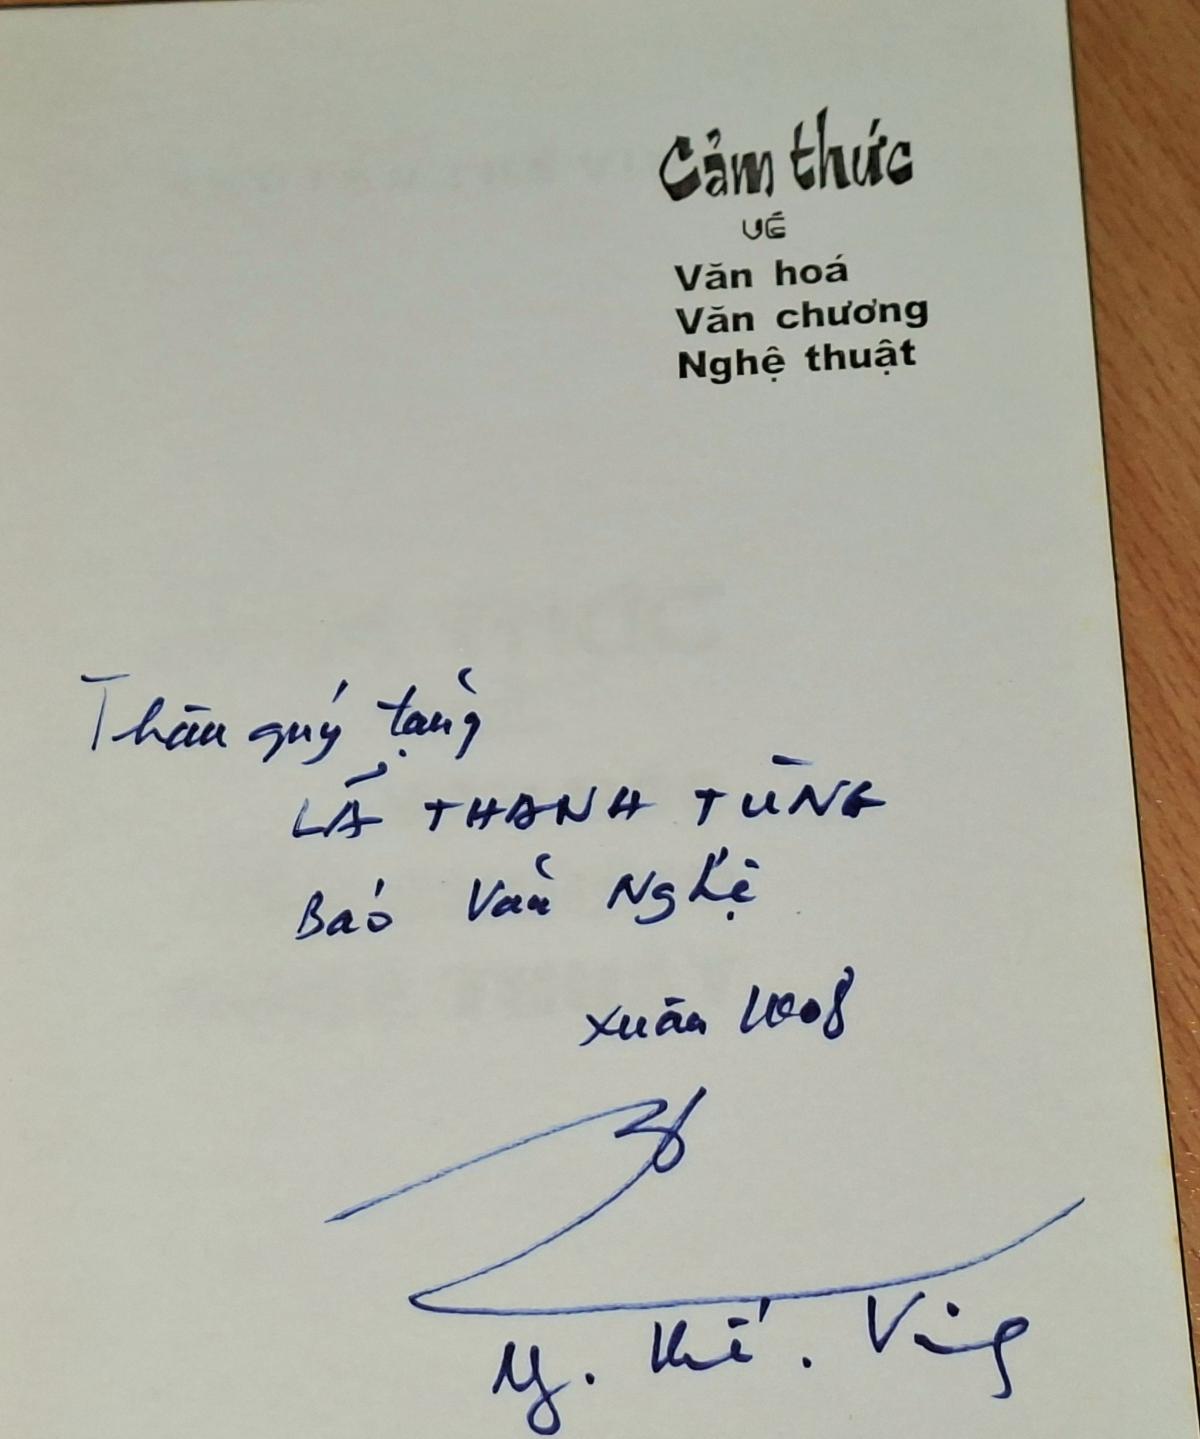 Cảm thức
về
Văn hoá
Văn chương
Nghệ thuật
Thân quý tặng
LÃ THANH TÙNG
Báo Văn Nghệ
Xuân 2008
Ng. Thế. Vinh